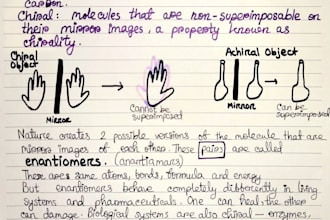 carbon.
Chiral: molecules that are non-superimposable on
their mirror images, a property known as
chirality.
Chiral Object
Achiral Object
Mirror
Cannot be superimposed
Mirror
Can be superimposed
Nature creates 2 possible versions of the molecule that are
mirror images of each other. These pairs are called
enantiomers. (enantiamars)
There are same atoms, bonds, formula and energy
But enantiomers behave completely differently in living
systems and pharmaceuticals. One can heal, the other
can damage. Biological systems are also chiral — enzymes,